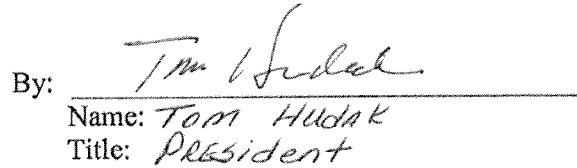 By: Tom Hudak
Name: Tom Hudak
Title: President